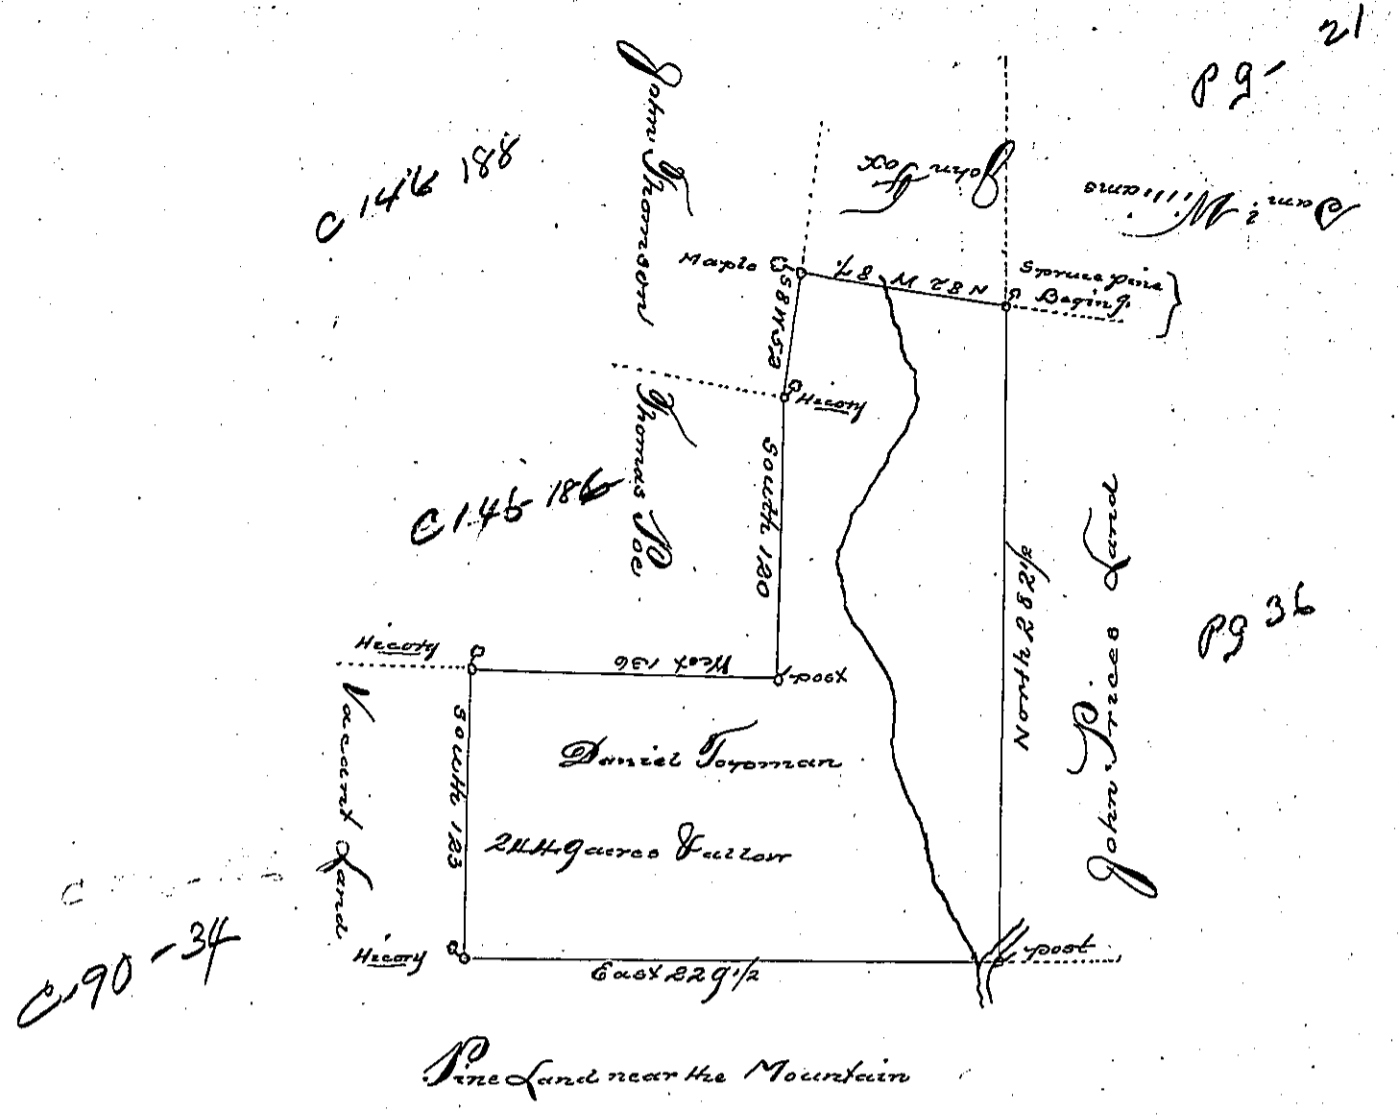 21
pg
C 146 188
John Thomson
John Fox
Sam.l Williams
Maple
S 8 W 52
N 82 W 87.
Spruce pine
Begin g.
Hicory
Thomas Poe
South 120
C 145 186
North 282 1/2
John Prices Land
pg 36
Hicory
West 136
post
Vacant Land
South 123
Daniel Toroman
244 9 acres & allow
C 90-34
Hicory
East 229 1/2
post
Pine Land near the Mountain